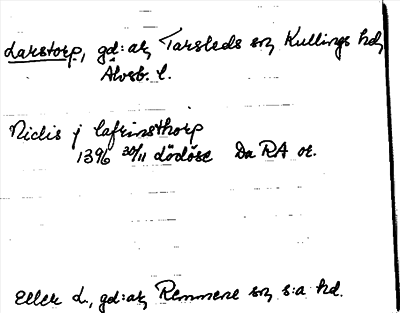 Larstorp, gd: at, Tarsleds sn, Kullings hd,
Älvsb. l.
Niclis j Lafrinsthorp
1396 30/11 Lödöse Da RA or.
Eller L., gd: at, Remmene sn, s:a hd.